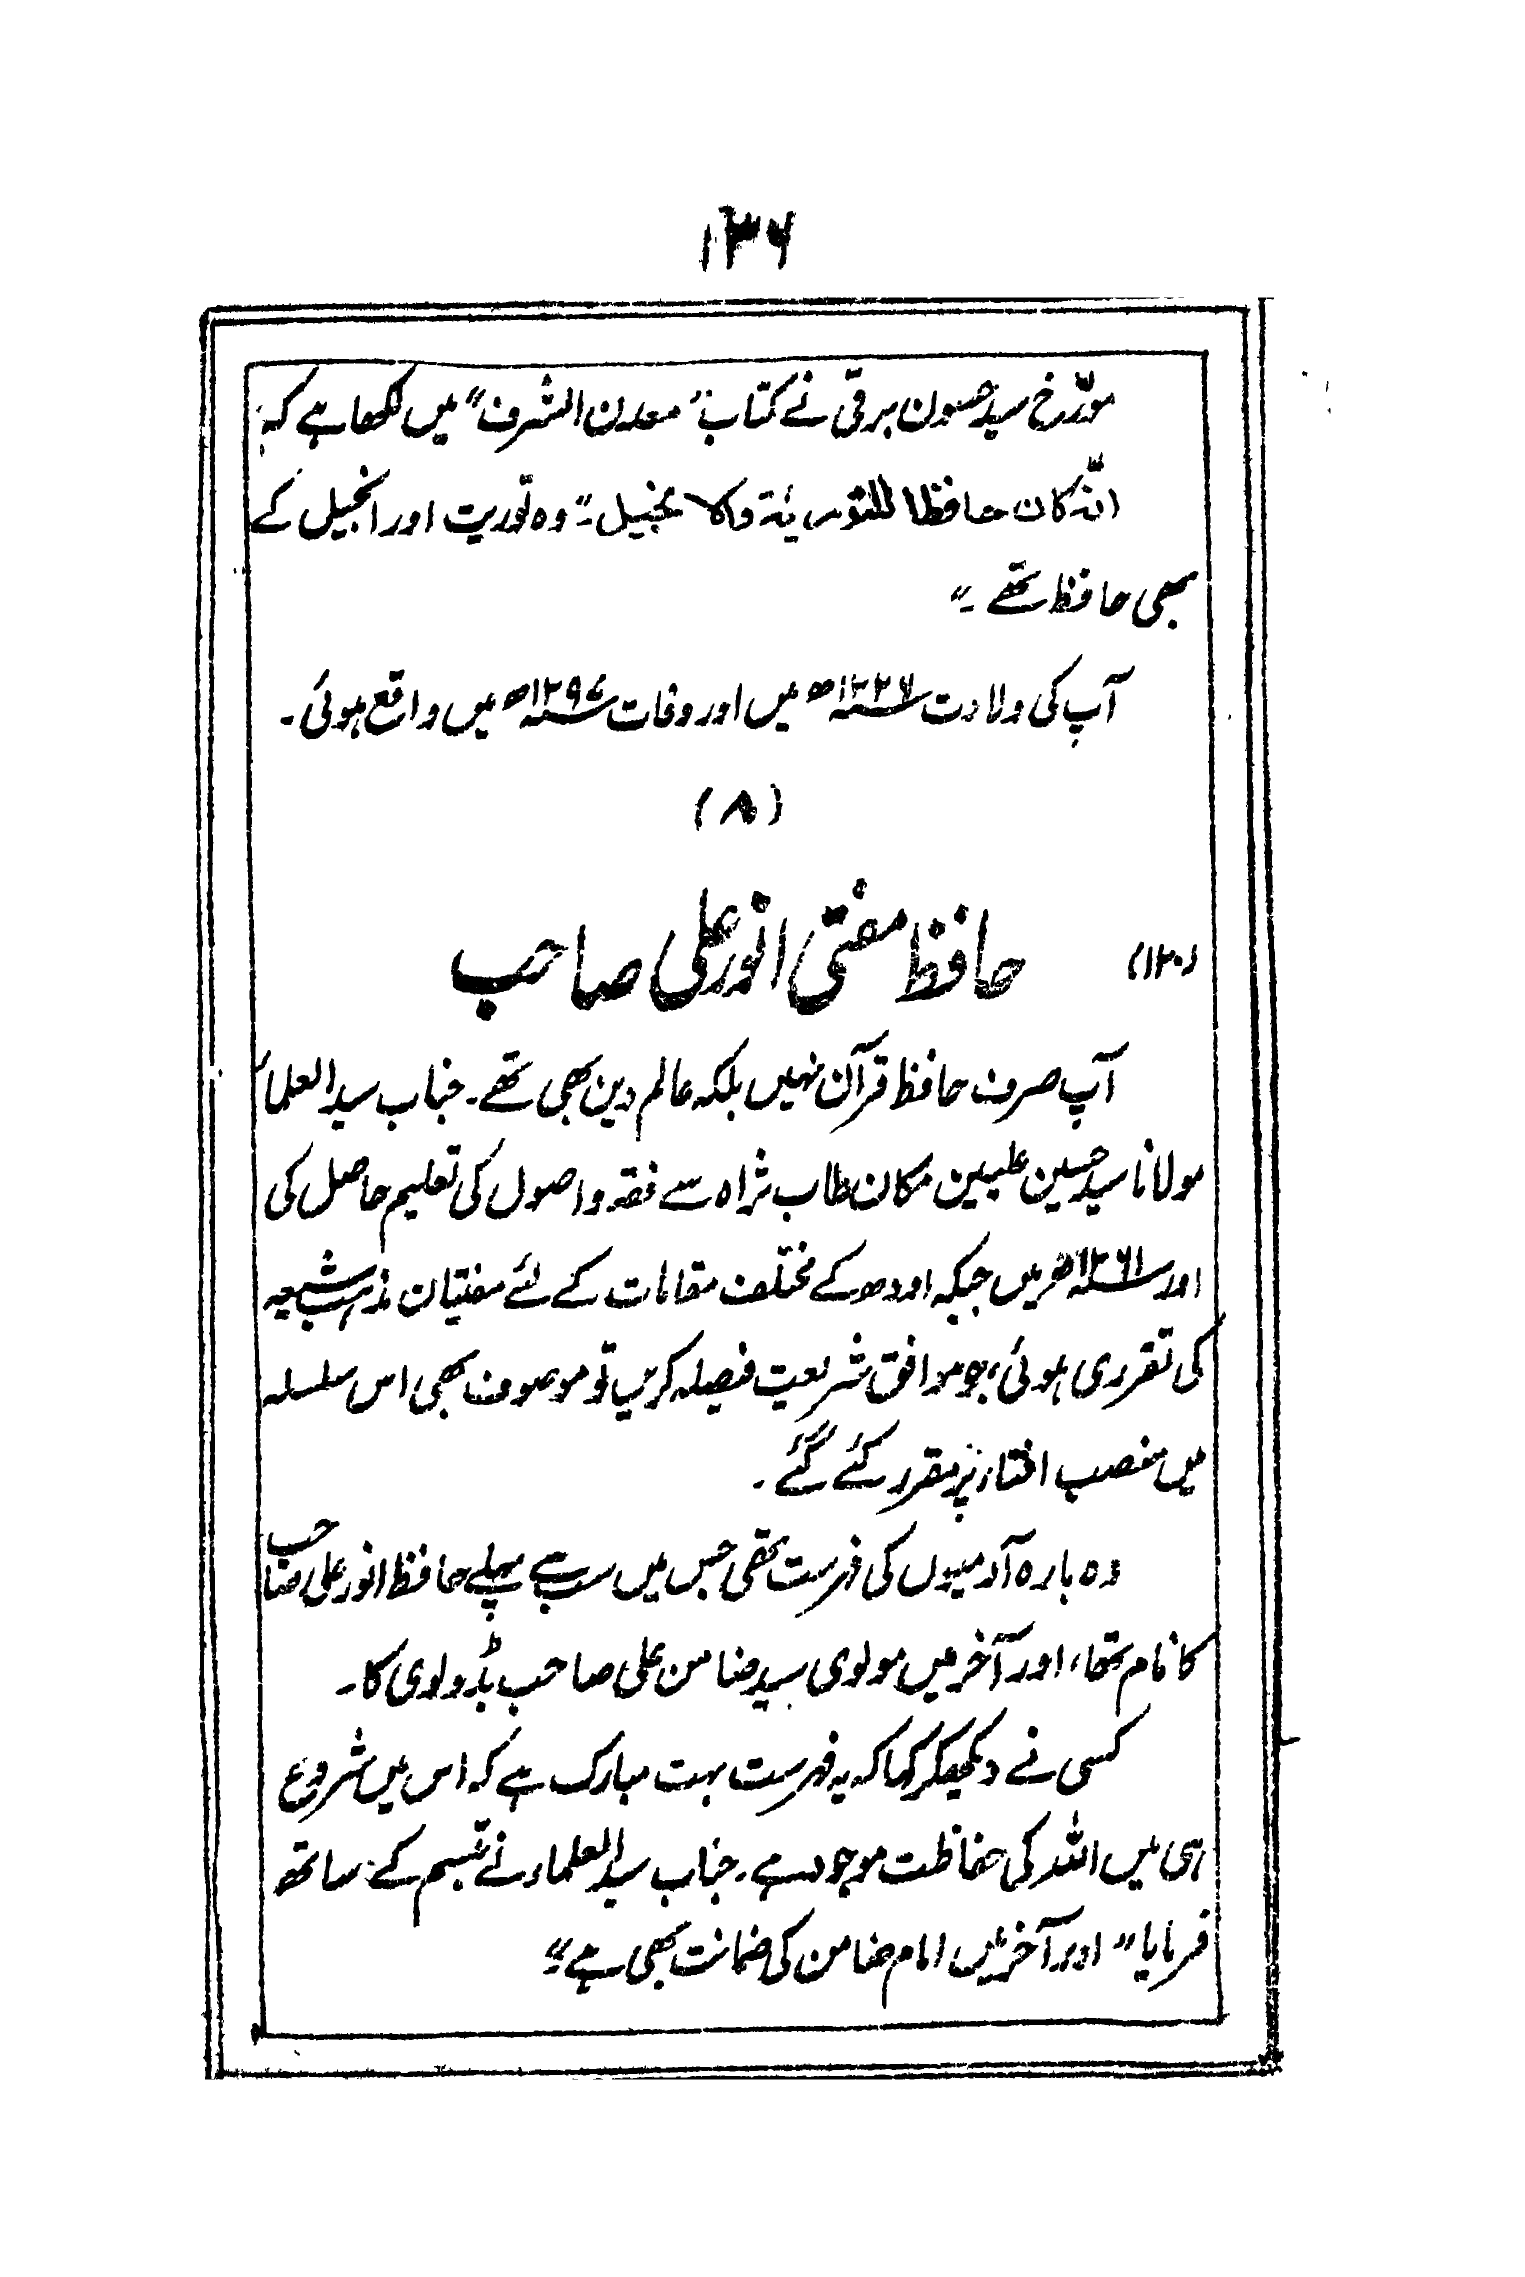 ۱۳۶
مورّخ سید حسون برقی نے کتاب "معدن الشرف" میں لکھا ہے کہ:
انّہ کان حافظا للتوریٰۃ والانجیل۔" وہ توریت اور انجیل کے
بھی حافظ تھے۔"
آپ کی ولادت ۱۲۲۷ھ میں اور وفات ۱۲۹۷ھ میں واقع ہوئی۔
(۸)
(۱۲۰) حافظ مفتی انور علی صاحب
آپ صرف حافظ قرآن نہیں بلکہ عالم دین بھی تھے۔ جناب سید العلماء
مولانا سید حسین علیین مکان طاب ثراہ سے فقہ و اصول کی تعلیم حاصل کی
اور ۱۲۶۱ھ میں جبکہ اودھ کے مختلف مقامات کے لئے مفتیان مذہب شیعہ
کی تقرری ہوئی، جو موافق شریعت فیصلہ کریں تو موصوف بھی اس سلسلہ
میں منصب افتاء پر مقرر کئے گئے۔
وہ بارہ آدمیوں کی فہرست تھی جس میں سب سے پہلے حافظ انور علی صاحب
کا نام تھا، اور آخر میں مولوی سید ضامن علی صاحب بڈولوی کا۔
کسی نے دیکھکر کہا کہ یہ فہرست بہت مبارک ہے کہ اس میں شروع
ہی میں اللہ کی حفاظت موجود ہے۔ جناب سید العلماء نے تبسم کے ساتھ
فرمایا "اور آخر میں امام ضامن کی ضمانت بھی ہے۔"